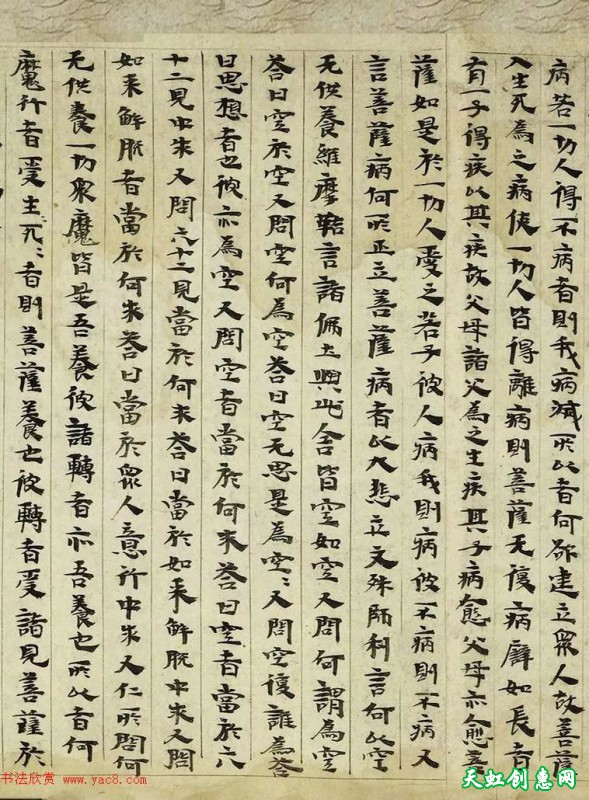 病若一切人得不病者則我病滅所以者何欲建立眾人故菩薩
入生死為之病使一切人皆得離病則菩薩无復病譬如長者
有一子得疾以其疾故父母諸父為之生疾其子病愈父母亦愈菩
薩如是於一切人愛之若子彼人病我則病彼不病則不病又
言菩薩病何所正立菩薩病者以大悲立文殊師利言何以空
无供養維摩詰言諸佛土與此舍皆空如空又問何謂為空
荅曰空於空又問空何為空荅曰空无思是為空〻又問空復誰為荅
曰思想者也彼亦為空又問空者當於何求荅曰空者當於六
十二見中求又問六十二見當於何求荅曰當於如来解脫中求又問
如来解脫者當於何求荅曰當於眾人意行中求又仁所問何
无供養一切眾魔皆是吾養彼諸轉者亦吾養也所以者何
魔行者受生死〻者則菩薩養也彼轉者受諸見菩薩於
书法欣赏 www.yac8.com
天虹创惠网